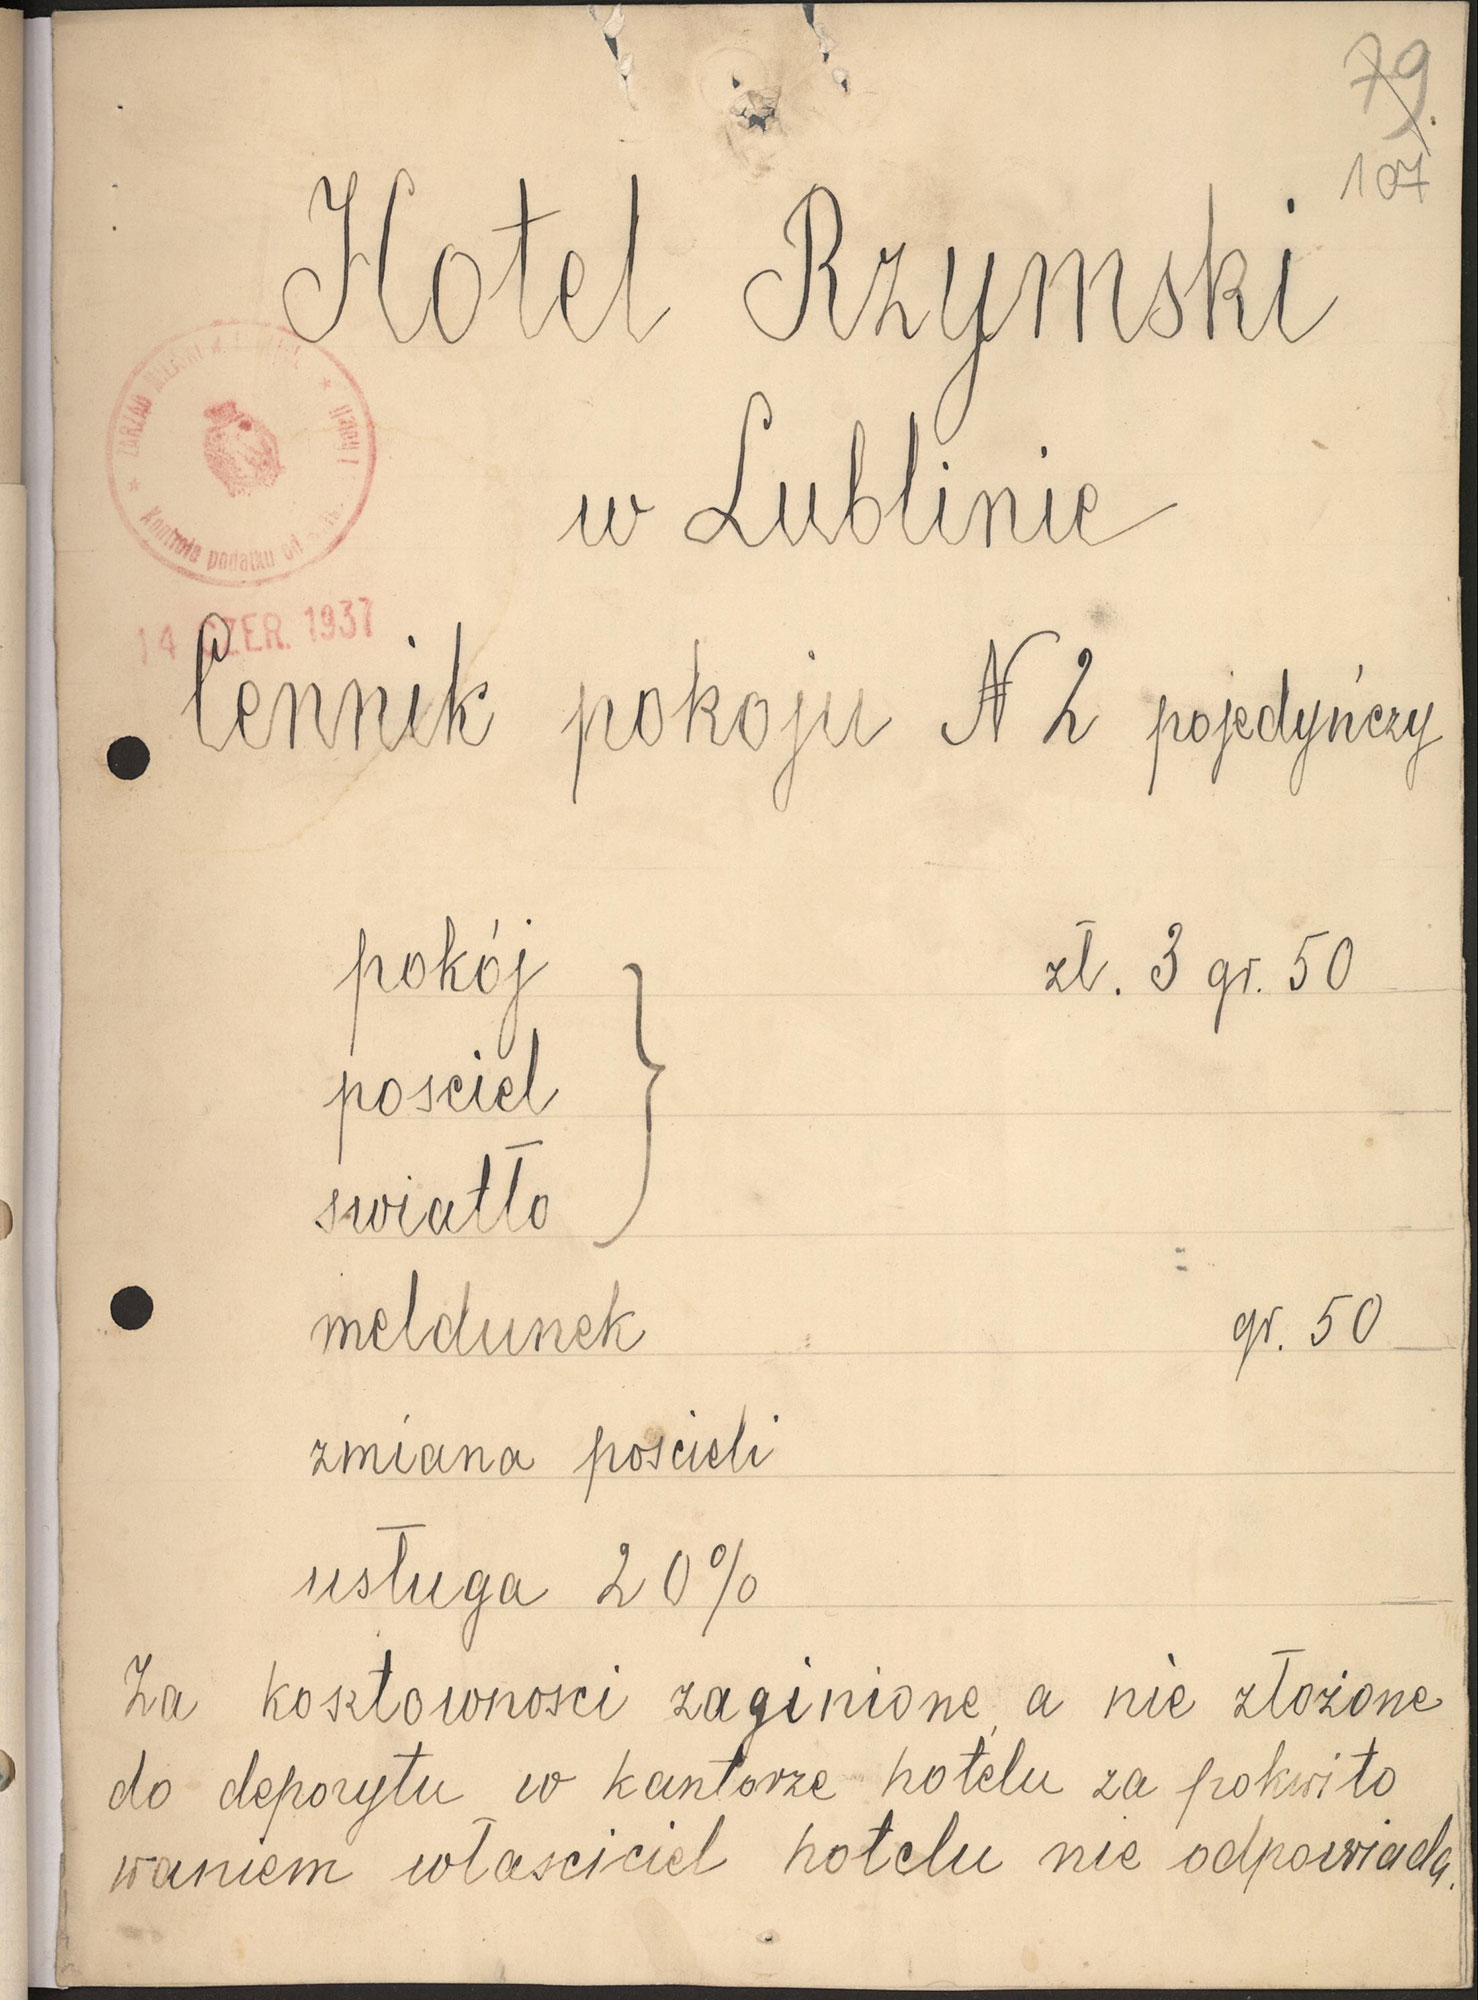 79
107
Hotel Rzymski
w Lublinie
ZARZĄD MIEJSKI W
Kontrola podatku od
14 CZER. 1937
Cennik pokoju № 2 pojedyńczy
pokój zł. 3 gr. 50
posciel
swiatło
meldunek gr. 50
zmiana poscieli
usługa 20%
Za kosztownosci zaginione, a nie złożone
do depozytu w kantorze hotelu za pokwito
waniem własciciel hotelu nie odpowiada.